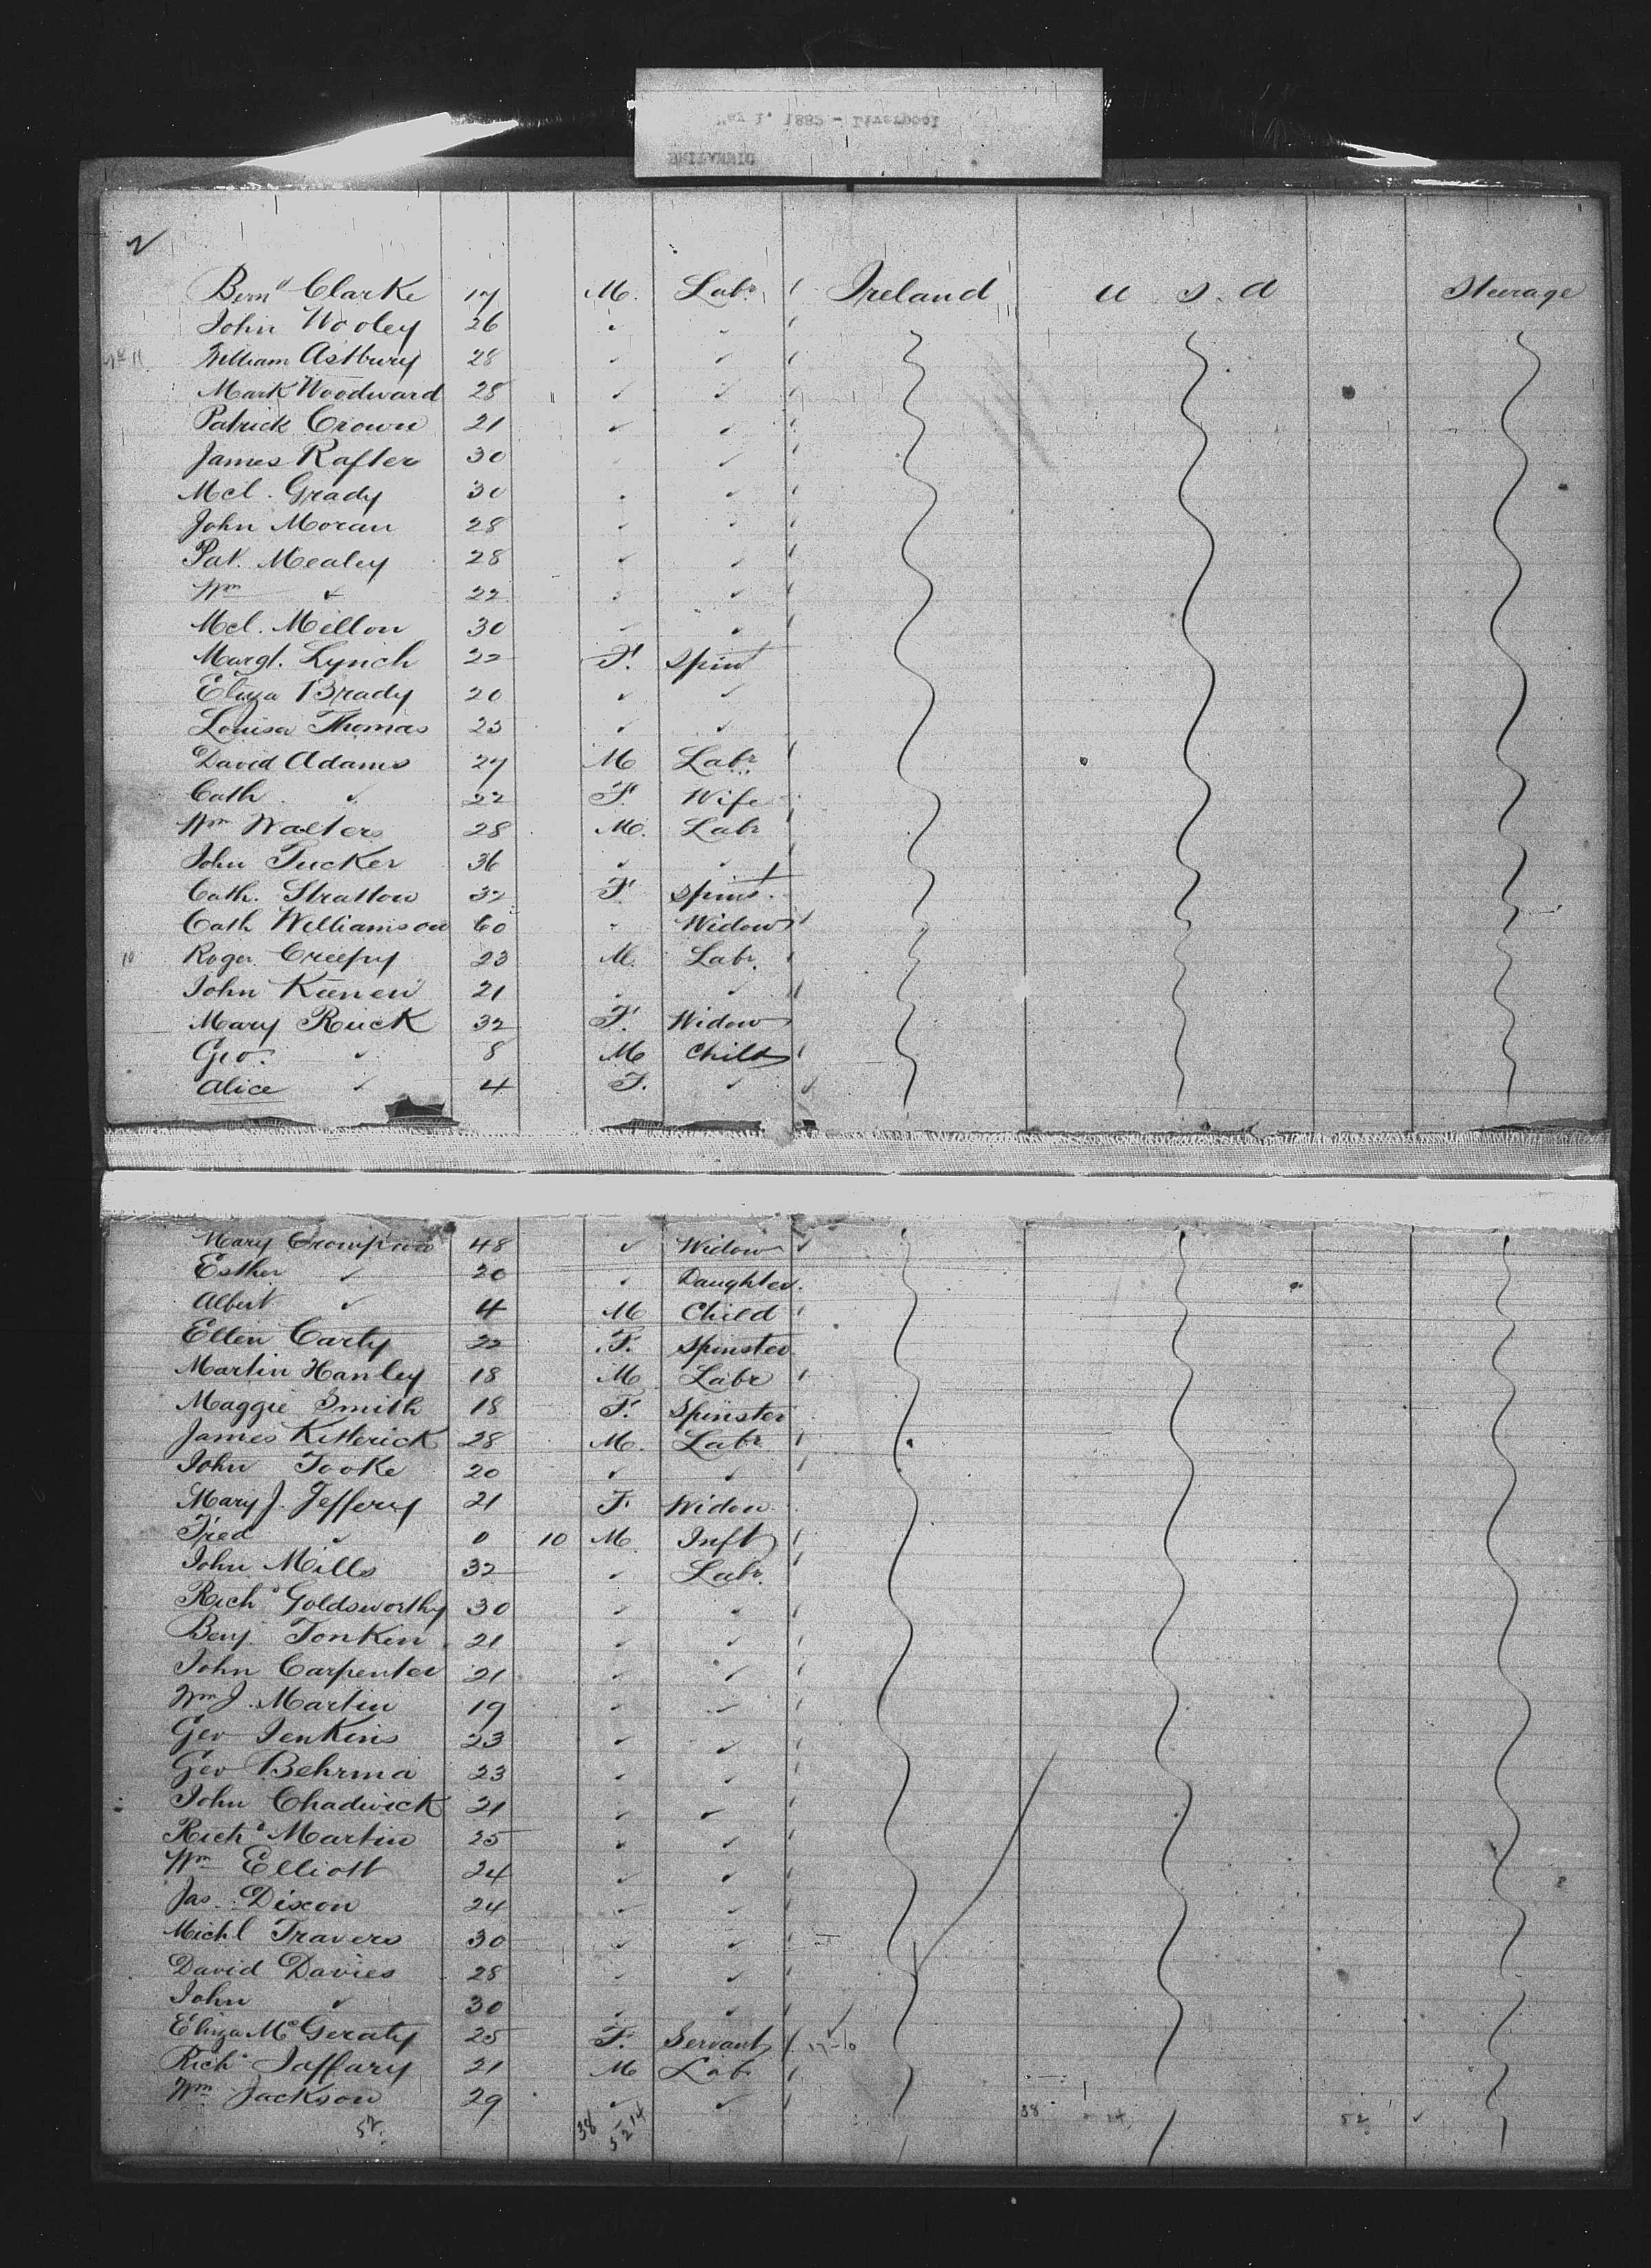 May 1, 1882 - Liverpool
BRITANNIC
2
Bernd Clarke 17 M. Labr Ireland U.S.A Steerage
John Wooley 26 " "
William Astbury 28 " "
Mark Woodward 28 " "
Patrick Crown 21 " "
James Rafter 30 " "
Mcl. Grady 30 " "
John Moran 28 " "
Pat. Mealey 28 " "
Wm " 22 " "
Mcl. Mellon 30 " "
Margt. Lynch 22 F. Spinst
Eliza Brady 20 " "
Louisa Thomas 23 " "
David Adams 27 M Labr
Cath " 22 F. Wife
Wm Walters 28 M. Labr
John Tucker 36 " "
Cath. Stratton 32 F. Spinst.
Cath Williamson 60 " Widow
Roger 23 M. Labr
John 21 " "
Mary Ruck 32 F. Widow
Geo. " 8 M Child
Alice " 4 F. "
Mary 48 " Widow
Esther " 20 " Daughter
Albert " 4 M Child
Ellen Carty 22 F. Spinster
Martin Hanley 18 M Labr
Maggie Smith 18 F. Spinster
James Kitterick 28 M. Labr
John Tooke 20 " "
Mary J. Jeffery 21 F. Widow
Fred " 0 10 M. Inft
John Mills 32 " Labr.
Richd Goldsworthy 30 " "
Benj. Tonkin 21 " "
John Carpenter 21 " "
Wm J. Martin 19 " "
Geo Jenkins 23 " "
Geo Behrma 23 " "
John Chadwick 21 " "
Richd Martin 25 " "
Wm Elliott 24 " "
Jas. Dixon 24 " "
Michl Travers 30 " "
David Davies 28 " "
John " 30 " "
Eliza McGeraty 25 F. Servant
Richd Jaffary 21 M Labr
Wm Jackson 29 " "
52 38 14 52 38 14 52